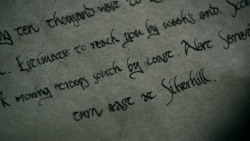 ng ten thousand west to
Estimate to reach you by weeks end.
moving troops south by coast. Alert
turn east at Silverhill.